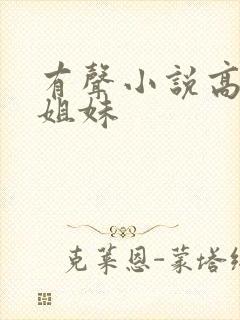 有聲小說高
姐妹
克萊恩-蒙塔